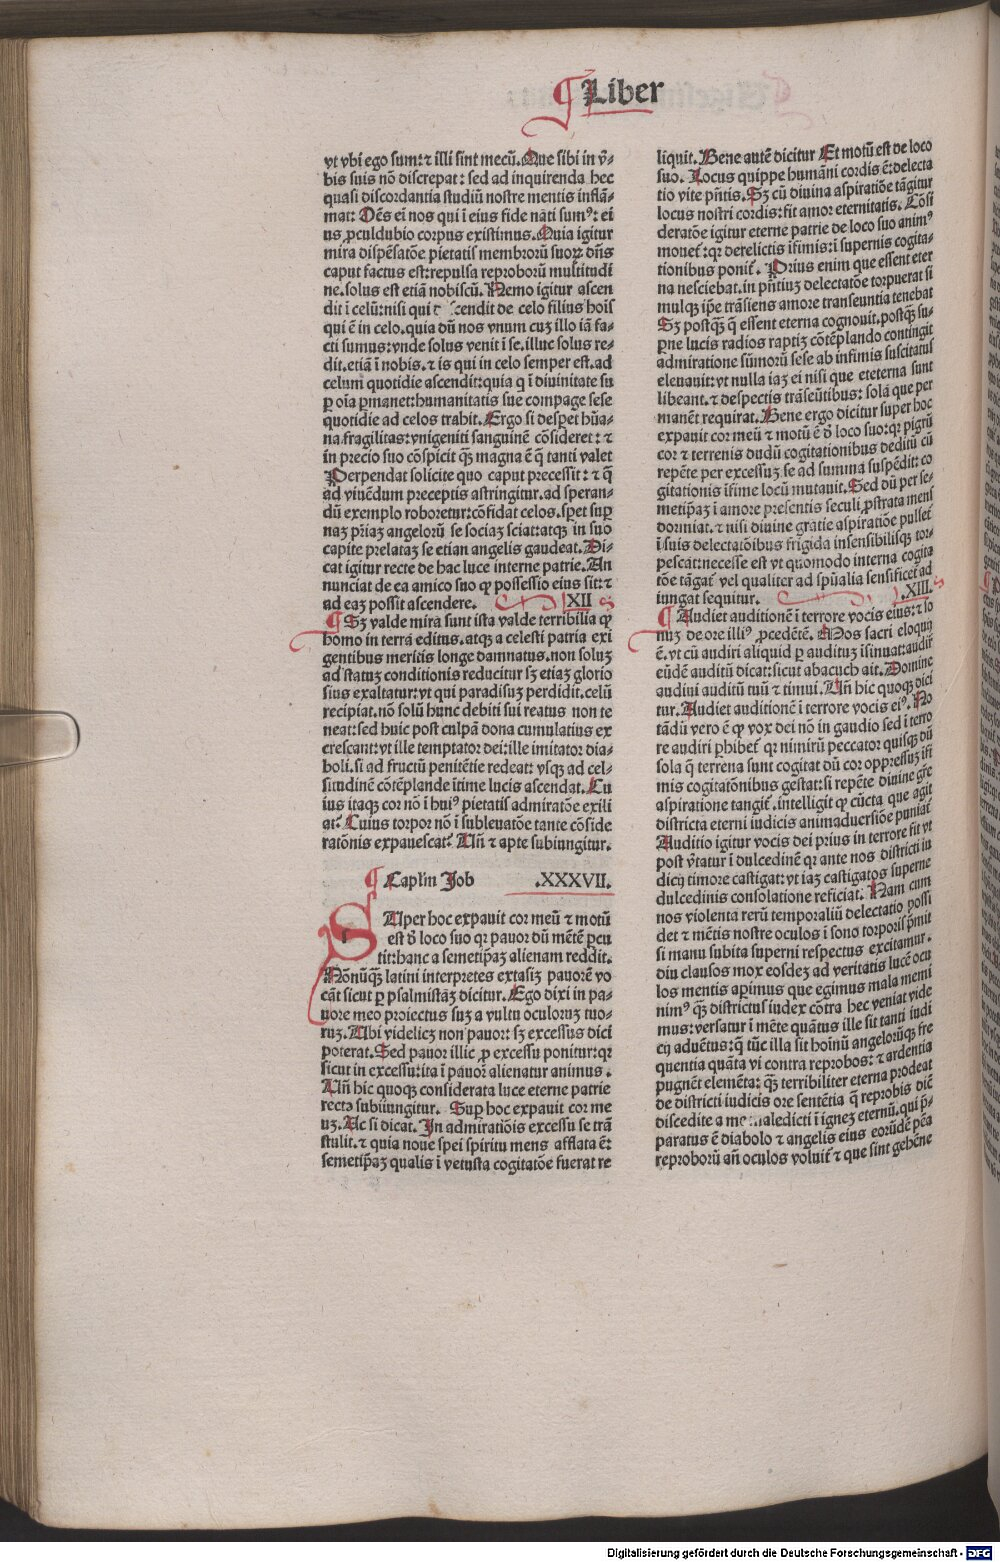 ¶ Liber
vt vbi ego sum: ⁊ illi sint mecū. Que sibi in v̄-
bis suis nō discrepat: sed ad inquirenda hec
quasi discordantia studiū nostre mentis inflā-
mat: Oēs em̄ nos qui ī eius fide nati sumꝰ: ei
us ꝓculdubio corpus existimus. Quia igitur
mira dispēsatōe pietatis membrorū suoꝝ dn̄s
caput factus est: repulsa reproborū multitudi
ne. solus est etiā nobiscū. Nemo igitur ascen
dit ī celū: nisi qui d scendit de celo filius hoīs
qui ē in celo. quia dū nos vnum cuꝫ illo iā fa-
cti sumus: vnde solus venit ī se. illuc solus re-
dit. etiā ī nobis. ⁊ is qui in celo semper est. ad
celum quotidie ascendit: quia q̄ ī diuinitate su
ꝑ oīa ꝑmanet: humanitatis sue compage sese
quotidie ad celos trahit. Ergo si despet hūa-
na fragilitas: vnigeniti sanguinē cōsideret: ⁊
in precio suo cōspicit qꝫ magna ē q̄ tanti valet
Perpendat solicite quo caput precessit: ⁊ q̄
ad viuēdum preceptis astringitur. ad speran-
dū exemplo roboretur: cōfidat celos. spet suꝑ
naꝫ pr̄iaꝫ angelorū se sociaꝫ sciat: atqꝫ in suo
capite prelataꝫ se etian angelis gaudeat. Di-
cat igitur recte de hac luce interne patrie. An
nunciat de ea amico suo ꝙ possessio eius sit: ⁊
ad eaꝫ possit ascendere. XII
¶ Sꝫ valde mira sunt ista valde terribilia ꝙ
homo in terra editus. atqꝫ a celesti patria exi
gentibus meritis longe damnatus. non soluꝫ
ad statuꝫ conditionis reducitur sꝫ etiaꝫ glorio
sius exaltatur: vt qui paradisuꝫ perdidit. celū
recipiat. nō solū hunc debiti sui reatus non te
neat: sed huic post culpā dona cumulatius ex
crescant: vt ille temptator dei: ille imitator dia-
boli. si ad fructū penitētie redeat: vsqꝫ ad cel-
situdinē cōtēplande ītime lucis ascendat. Cu
ius itaqꝫ cor nō ī huiꝰ pietatis admiratōe exili
at? Cuius torpor nō ī subleuatōe tante cōside
ratōnis expauescat? Vn̄ ⁊ apte subiungitur.
¶ Capl̄m Job .XXXVII.
SUper hoc expauit cor meū ⁊ motū
est d̄ loco suo qꝛ pauor dū mētē pcu
tit: hanc a semetip̄aꝫ alienam reddit.
Nōnūqꝫ latini interpretes extasiꝫ pauorē vo
cāt sicut ꝑ psalmistāꝫ dicitur. Ego dixi in pa-
uore meo proiectus suꝫ a vultu oculoruꝫ tuo-
ruꝫ. Ubi videlicꝫ non pauor: sꝫ excessus dici
poterat. Sed pauor illic ꝓ excessu ponitur: qꝛ
sicut in excessu: ita ī pauor̄ alienatur animus.
Vn̄ hic quoqꝫ considerata luce eterne patrie
recta subiūngitur. Suꝑ hoc expauit cor me
uꝫ. Ac si dicat. In admiratiōis excessu se trā
stulit. ⁊ quia noue spei spiritu mens afflata ē:
semetip̄aꝫ qualis ī vetusta cogitatōe fuerat re
liquit. Bene autē dicitur Et motū est de loco
suo. Locus quippe humani cordis ē: delecta
tio vite pn̄tis. Sꝫ cū diuina aspiratiōe tāgitur
locus nostri cordis: fit amor eternitatis. Cōsi
deratōe igitur eterne patrie de loco suo animꝰ
mouet᷑: qꝛ derelictis īfimis: ī supernis cogita-
tionibus ponit᷑. Prius enim que essent eter
na nesciebat. in pn̄tiuꝫ delectatōe torpuerat si
mulqꝫ ip̄e trāsiens amore transeuntia tenebat
Sꝫ postqꝫ q̄ essent eterna cognouit. postqꝫ su-
ꝑne lucis radios raptiꝫ cōtēplando contingit
admiratione sūmorū sese ab infimis suscitatus
eleuauit: vt nulla iaꝫ ei nisi que eteterna sunt
libeant. ⁊ despectis trāseūtibus: solā que per
manēt requirat. Bene ergo dicitur super hoc
expauit cor meū ⁊ motū ē d̄ loco suo: qꝛ pigrū
cor ⁊ terrenis dudū cogitationibus deditū cū
repēte per excessuꝫ se ad summa suspēdit: co
gitationis īfime locū mutauit. Sed dū per se-
metip̄aꝫ ī amore presentis seculi ꝓstrata mens
dormiat. ⁊ nisi diuine gratie aspiratiōe pulset᷑
ī suis delectatōibus frigida insensibilisqꝫ tor-
pescat: necesse est vt quomodo interna cogita
tōe tāgat᷑ vel qualiter ad sp̄ualia sensificet᷑ ad
iungat sequitur. .XIII.
¶ Audiet auditionē ī terrore vocis eius: ⁊ so
nuꝫ de ore illiꝰ ꝓcedētē. Mos sacri eloquij
ē. vt cū audiri aliquid ꝑ audituꝫ īsinuat: audir̄
eūdē auditū dicat: sicut abacuch ait. Domine
audiui auditū tuū ⁊ timui. Vn̄ hic quoqꝫ dici
tur. Audiet auditionē ī terrore vocis eiꝰ. No
tādū vero ē ꝙ vox dei nō in gaudio sed ī terro
re audiri ꝑhibet᷑ qꝛ nimirū peccator quisqꝫ dū
sola q̄ terrena sunt cogitat dū cor oppressuꝫ īfi
mis cogitatōnibus gestat: si repēte diuine gr̄e
aspiratione tangit᷑. intelligit ꝙ cūcta que agit
districta eterni iudicis animaduersiōe puniat᷑
Auditio igitur vocis dei prius in terrore fit vt
post v̄tatur ī dulcedinē qꝛ ante nos districti iu
dicij timore castigat: vt iaꝫ castigatos superne
dulcedinis consolatione reficiat. Nam cum
nos violenta rerū temporaliū delectatio possi
det ⁊ mētis nostre oculos ī sono torporis p̄mit
si manu subita superni respectus excitamur.
diu clausos mox eosdeꝫ ad veritatis lucē ocu
los mentis aꝑimus que egimus mala memi
nimꝰ qꝫ districtus iudex cōtra hec veniat vide
mus: versatur ī mēte quātus ille sit tanti iudi
cij aduētus: q̄ tūc illa sit hoīnū angelorūqꝫ fre
quentia quāta vi contra reprobos: ⁊ ardentia
pugnēt elemēta: qꝫ terribiliter eterna prodeat
de districti iudicis ore sentētia q̄ reprobis dīc̄
discedite a me maledicti ī igneꝫ eternū. qui p̄-
paratus ē diabolo ⁊ angelis eius eorūdē pēa
reproborū an̄ oculos voluit᷑ ⁊ que sint gehēne
Digitalisierung gefördert durch die Deutsche Forschungsgemeinschaft - DFG